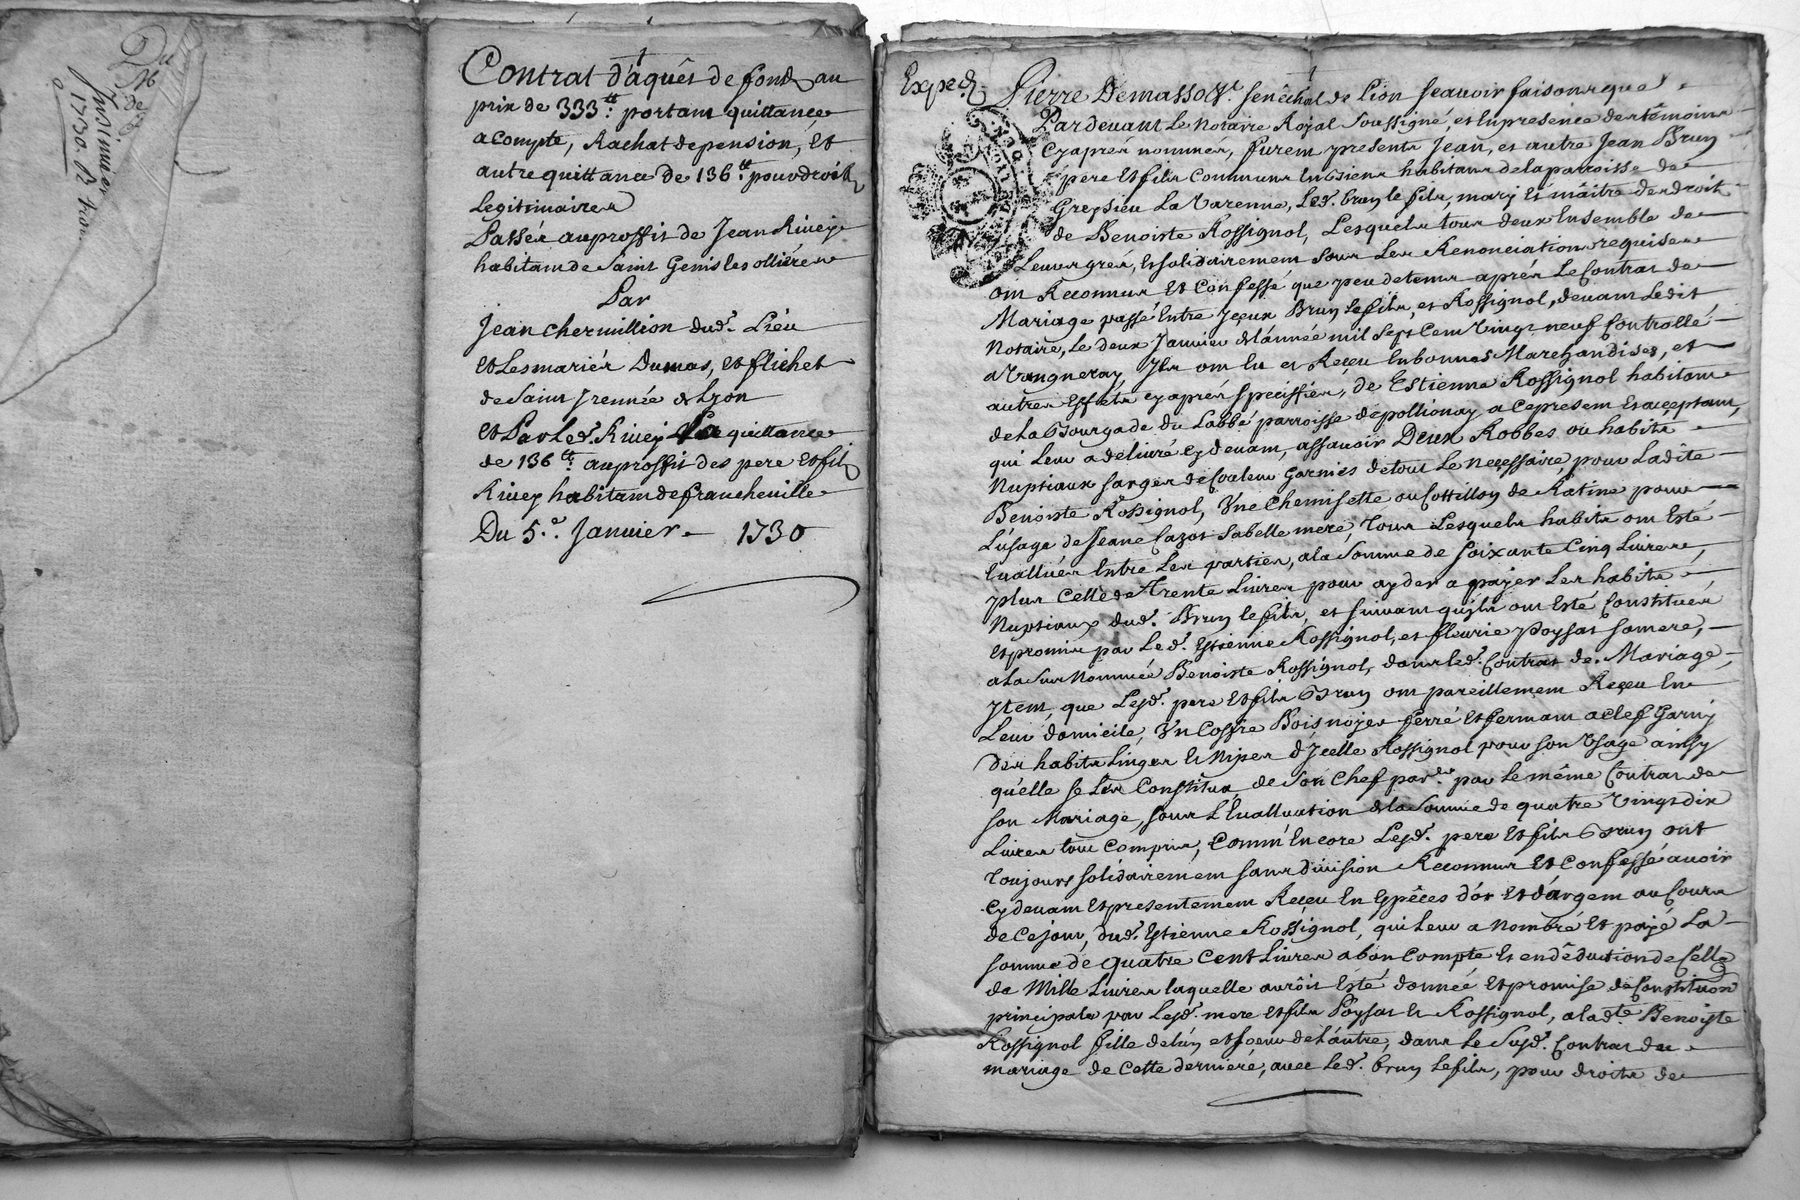 Du
de
Justinien
1730. B
Contrat d'aquêt de fond au
prix de 333tt. portant quittance
acompte, Rachat de pension, Et
autre quittance de 136tt pour droits
Legitimaires
Passés au proffit de Jean Rivey
habitant de Saint Genis les ollières
Par
Jean chermillion dud. Lieu
Et Les mariés Dumas, et flichet
de Saint Irennée de Lyon
Et Par Led. Rivey La quittance
de 136tt. au proffit des pere Et fils
Rivey habitant de francheville
Du 5e. Janvier 1730
Exped.
Pierre Demasso Sr. senêchal de Lion scavoir faisons que
Pardevant Le Notaire Royal Soussigné, et En presence des têmoins
Cyaprés nommés, furent presents Jean, et autre Jean Brun
pere Et fils Communs En biens habitans de la parroisse de
Gresieu La Varenne, Led. brun le fils, mary Et maitre des droits
de Benoiste Rossignol, Lesquels tous deux Ensemble de
Leurs grés, Et solidairement sous Les Renonciations requises
ont Reconnus Et Confessé que peu de tems aprés Le Contrat de
Mariage passé Entre Iceux Brun Le fils, et Rossignol, devant Ledit
Notaire, Le deux Janvier de l'année mil Sept Cent Vingt neuf Controllé
a Vaugneray Ils ont Eu et Reçeu En bonnes Marchandises, et
autres Effets cyaprés specifiés, de Estienne Rossignol habitant
de La Bourgade du Labbé parroisse de pollionay a Ce present Et acceptant,
qui Leur a delivré Cy devant, assavoir Deux Robbes ou habits
Nuptiaux sarges de Couleur garnies de tout Le necessaire, pour Ladite
Benoiste Rossignol, Une Chemisette ou Cottillon de Ratine pour
L'usage de Jeane Cazot Sa belle mere, Tous Lesquels habits ont Esté
Evallués Entre Les parties, a la Somme de soixante Cinq Livres,
plus Celle de Trente Livres pour ayder a payer Les habits
Nuptiaux dud. Brun le fils, et suivant qu'ils ont Esté Constitués
Et promis par Led. Estienne Rossignol, et fleurie Poysat sa mere,
a La Sus Nommée Benoiste Rossignol, dans led. Contrat de Mariage,
Item, que Lesd. pere Et fils Brun ont pareillement Reçeu En
Leur domicile, Un Coffre Bois noyer ferré Et fermant a Clef garny
des habits Linges Et Nipes d'Icelle Rossignol pour son Usage ainsy
qu'elle se Les Constitua de son Chef par le même Contrat de
son Mariage, sous L'Evalluation de la Somme de quatre Vingt dix
Livres tout Compris, Comm'Encore Lesd. pere Et fils Brun, ont
Toujours solidairement sans division Reconnus Et Confessé avoir
Cydevant Et presentement Reçeu En Espêces d'or Et d'argent au Cours
de Ce jour, dud. Estienne Rossignol, qui Leur a Nombré Et payé La
somme de quatre Cent Livres a bon Compte Et en dêduction de Celle
de Mille Livres laquelle auroit Esté donnée Et promise de Constitution
principale par Lesd. mere Et fils Poysat Et Rossignol, a lad.te Benoiste
Rossignol fille de L'un, et soeur de L'autre, dans Le Susd. Contrat de
mariage de Cette derniere, avec Led. brun Le fils, pour droits de